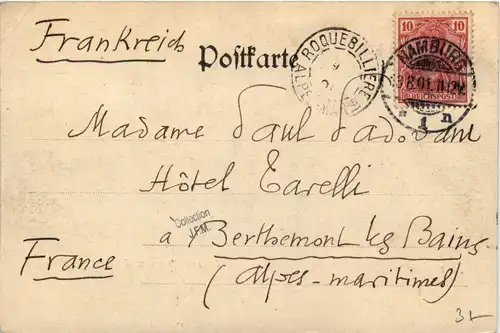 Frankreich
Postkarte
10
REICHSPOST
HAMBURG
1 n
ROQUEBILLIERE
Madame Paul Padovani
Hôtel Tarelli
Collection
J.F.M.
a Berthemont les Bains
France
(Alpes-maritimes)